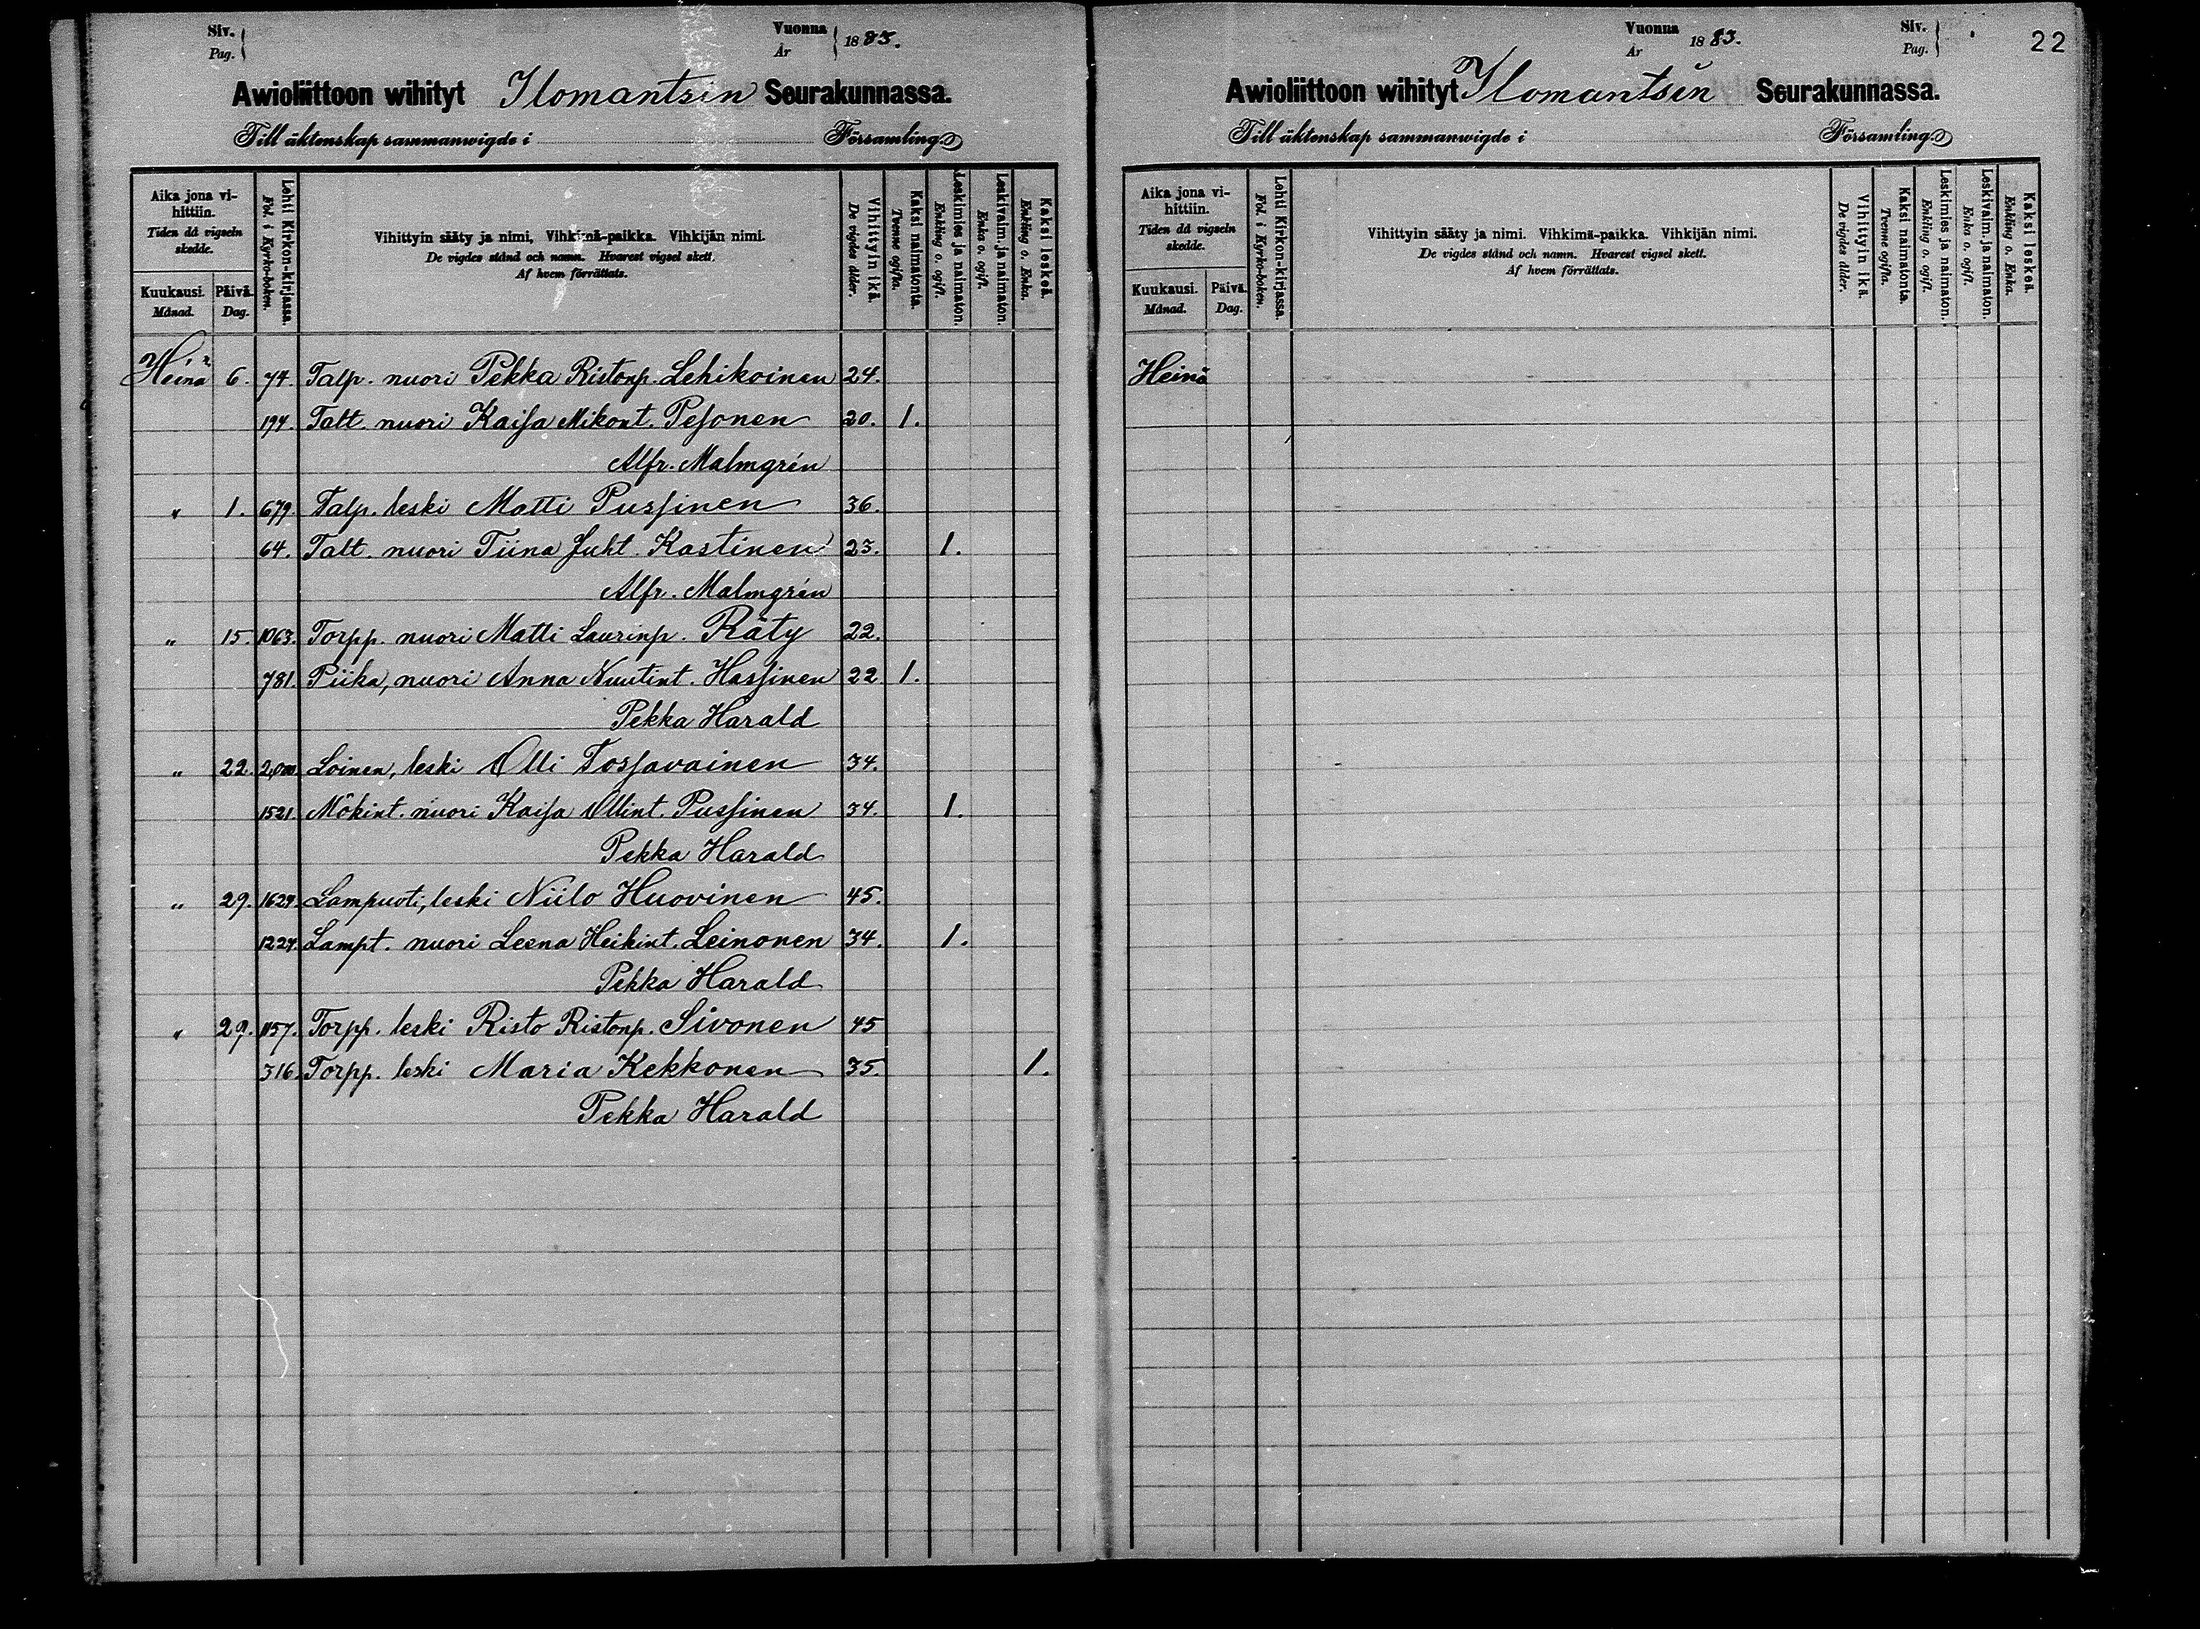 Siv.
Pag.
Vuonna
År
1883.
Awioliittoon wihityt Ilomantsin Seurakunnassa.
Till äktenskap sammanwigde i Församling.
Aika jona vihittiin.
Tiden då vigseln skedde.
Kuukausi.
Månad.
Päivä.
Dag.
Lehti Kirkon-kirjassa.
Fol. i Kyrko-boken.
Vihittyin sääty ja nimi. Vihkimä-paikka. Vihkijän nimi.
De vigdes stånd och namn. Hvarest vigsel skett.
Af hvem förrättats.
Vihittyin ikä.
De vigdes ålder.
Kaksi naimatonta.
Tvenne ogifta.
Leskimies ja naimaton.
Enkling o. ogift.
Leskivaim. ja naimaton.
Enka o. ogift.
Kaksi leskeä.
Enkling o. Enka.
Heinä 6. 74. Talp. nuori Pekka Ristonp. Lehikoinen 24.
194. Talt. nuori Kaisa Mikont. Pesonen 20. 1.
Alfr. Malmgrén
" 1. 679. Talp. leski Matti Pussinen 36.
64. Talt. nuori Tiina Juht. Kastinen 23. 1.
Alfr. Malmgrén
" 15. 1063. Torpp. nuori Matti Laurinp. Räty 22.
781. Piika, nuori Anna Nuutint. Hassinen 22 1.
Pekka Harald
" 22. Loinen, leski Olli Torsavainen 34.
1521. Mökint. nuori Kaisa Ollint. Pussinen 34. 1.
Pekka Harald
" 29. 1624. Lampuoti, leski Niilo Huovinen 45.
1227. Lampt. nuori Leena Heikint. Leinonen 34. 1.
Pekka Harald
" 29. 1157. Torpp. leski Risto Ristonp. Sivonen 45
316. Torpp. leski Maria Kekkonen 35. 1.
Pekka Harald
Vuonna
År
1883.
Siv.
Pag.
22
Awioliittoon wihityt Ilomantsin Seurakunnassa.
Till äktenskap sammanwigde i Församling.
Aika jona vihittiin.
Tiden då vigseln skedde.
Kuukausi.
Månad.
Päivä.
Dag.
Lehti Kirkon-kirjassa.
Fol. i Kyrko-boken.
Vihittyin sääty ja nimi. Vihkimä-paikka. Vihkijän nimi.
De vigdes stånd och namn. Hvarest vigsel skett.
Af hvem förrättats.
Vihittyin ikä.
De vigdes ålder.
Kaksi naimatonta.
Tvenne ogifta.
Leskimies ja naimaton.
Enkling o. ogift.
Leskivaim. ja naimaton.
Enka o. ogift.
Kaksi leskeä.
Enkling o. Enka.
Heinä